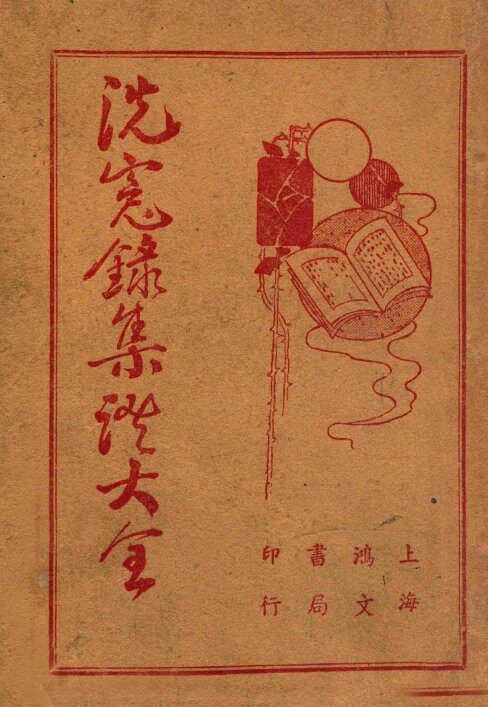 洗冤錄集證大全
上海
鴻文
書局
印行